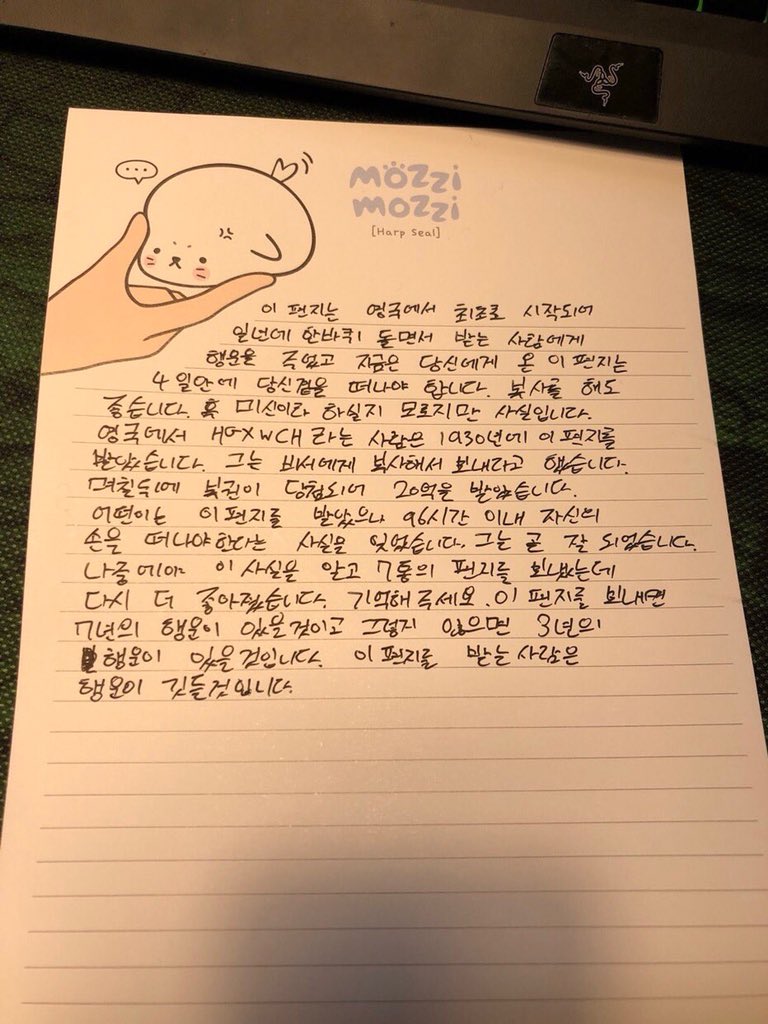 ...
MÖZZi
MOZZi
[Harp Seal]
이 편지는 영국에서 최초로 시작되어
일년에 한바퀴 돌면서 받는 사람에게
행운을 주었고 지금은 당신에게 온 이 편지는
4일안에 당신곁을 떠나야 합니다. 복사를 해도
좋습니다. 혹 미신이라 하실지 모르지만 사실입니다.
영국에서 HGXWCH라는 사람은 1930년에 이 편지를
받았습니다. 그는 비서에게 복사해서 보내라고 했습니다.
며칠뒤에 복권이 당첨되어 20억을 받았습니다.
어떤이는 이 편지를 받았으나 96시간 이내 자신의
손을 떠나야 한다는 사실을 잊었습니다. 그는 곧 잘 되었습니다.
나중에야 이 사실을 알고 7통의 편지를 보냈는데
다시 더 좋아졌습니다. 기억해주세요. 이 편지를 보내면
7년의 행운이 있을것이고 그렇지 않으면 3년의
행운이 있을것입니다. 이 편지를 받는 사람은
행운이 깃들것입니다.